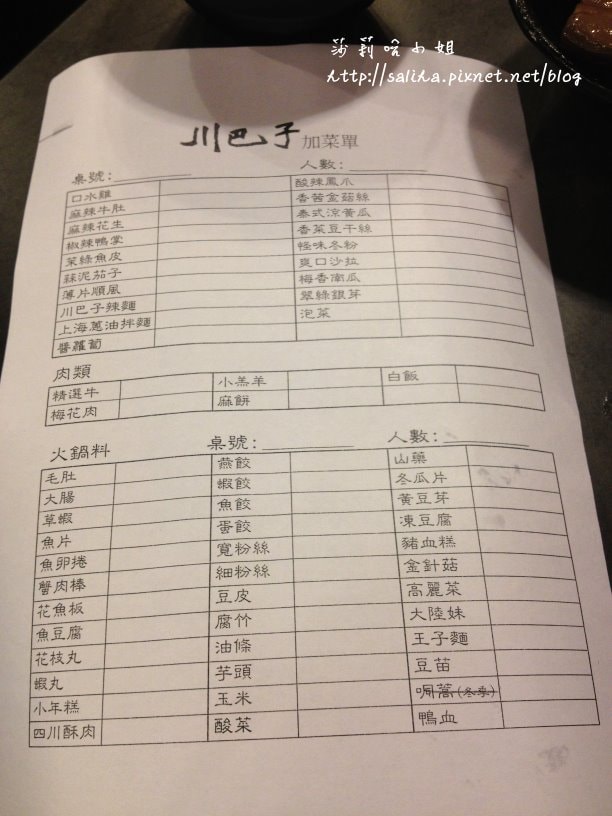 莎莉啥小姐
http://saliha.pixnet.net/blog
川巴子 加菜單
桌號: 人數:
口水雞 酸辣鳳爪
麻辣牛肚 香茜金菇絲
麻辣花生 泰式涼黃瓜
椒辣鴨掌 香菜豆干絲
茉綠魚皮 怪味冬粉
蒜泥茄子 爽口沙拉
薄片順風 梅香南瓜
川巴子辣麵 翠綠銀芽
上海蔥油拌麵 泡菜
醬蘿蔔
肉類
精選牛 小羔羊 白飯
梅花肉 麻餅
火鍋料 桌號: 人數:
毛肚 燕餃 山藥
大腸 蝦餃 冬瓜片
草蝦 魚餃 黃豆芽
魚片 蛋餃 凍豆腐
魚卵捲 寬粉絲 豬血糕
蟹肉棒 細粉絲 金針菇
花魚板 豆皮 高麗菜
魚豆腐 腐竹 大陸妹
花枝丸 油條 王子麵
蝦丸 芋頭 豆苗
小年糕 玉米 茼蒿(冬季)
四川酥肉 酸菜 鴨血